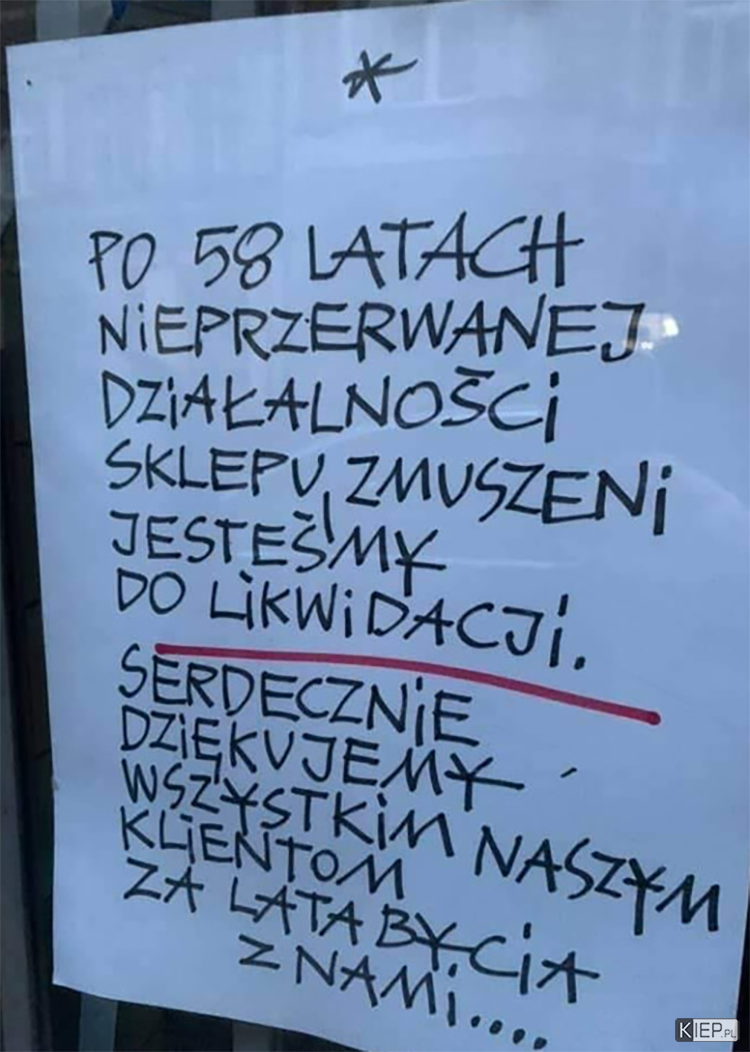 *
PO 58 LATACH
NiEPRZERWANEJ
DZiAŁALNOŚCi
SKLEPU, ZMUSZENi
JESTEŚMY
DO LiKWiDACJi.
SERDECZNiE
DZiĘKUJEMY
WSZYSTKiM NASZYM
KLiENTOM
ZA LATA BYCiA
Z NAMi....
KIEP.PL